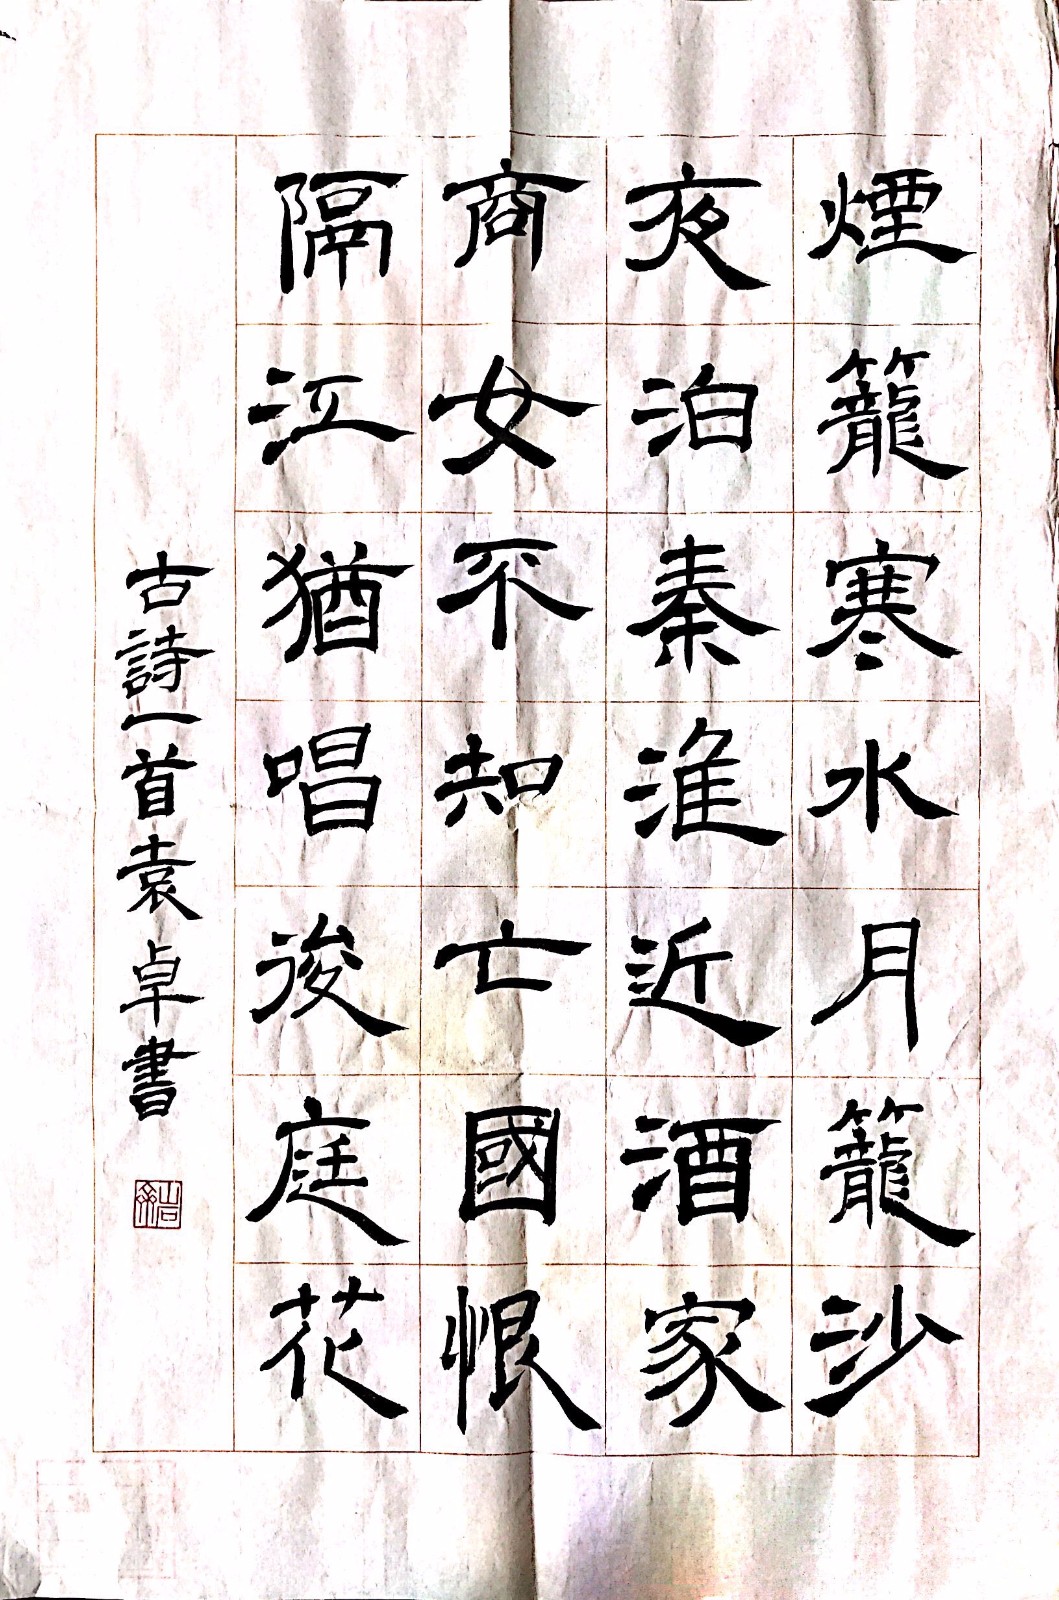 煙籠寒水月籠沙
夜泊秦淮近酒家
商女不知亡國恨
隔江猶唱後庭花
古詩一首袁卓書